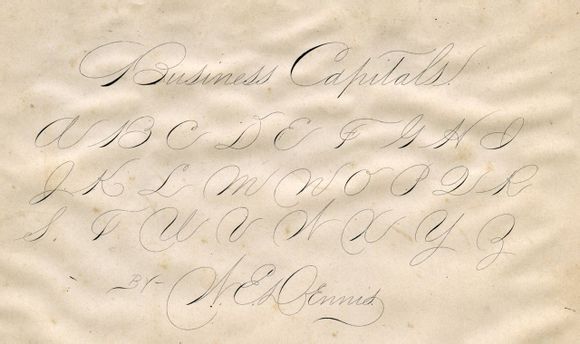 Business Capitals.
A B C D E F G H I
J K L M N O P Q R
S. T U V W X Y Z
BY- W.E. Dennis